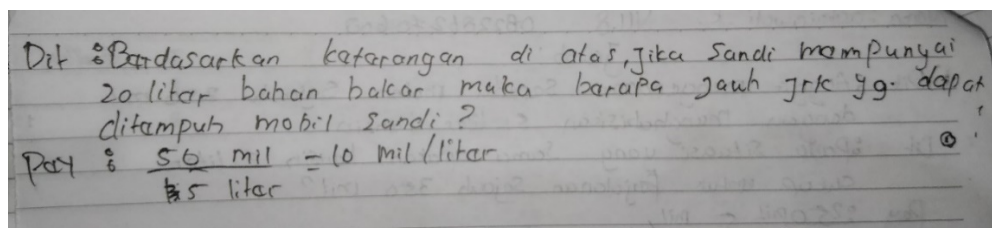 Dit : Berdasarkan katarangan di atas, Jika Sandi mampunyai
20 litar bahan bakar maka barapa Jauh Jrk yg. dapat
ditampuh mobil Sandi?
Pay : 50 mil = 10 mil/litar
5 litar